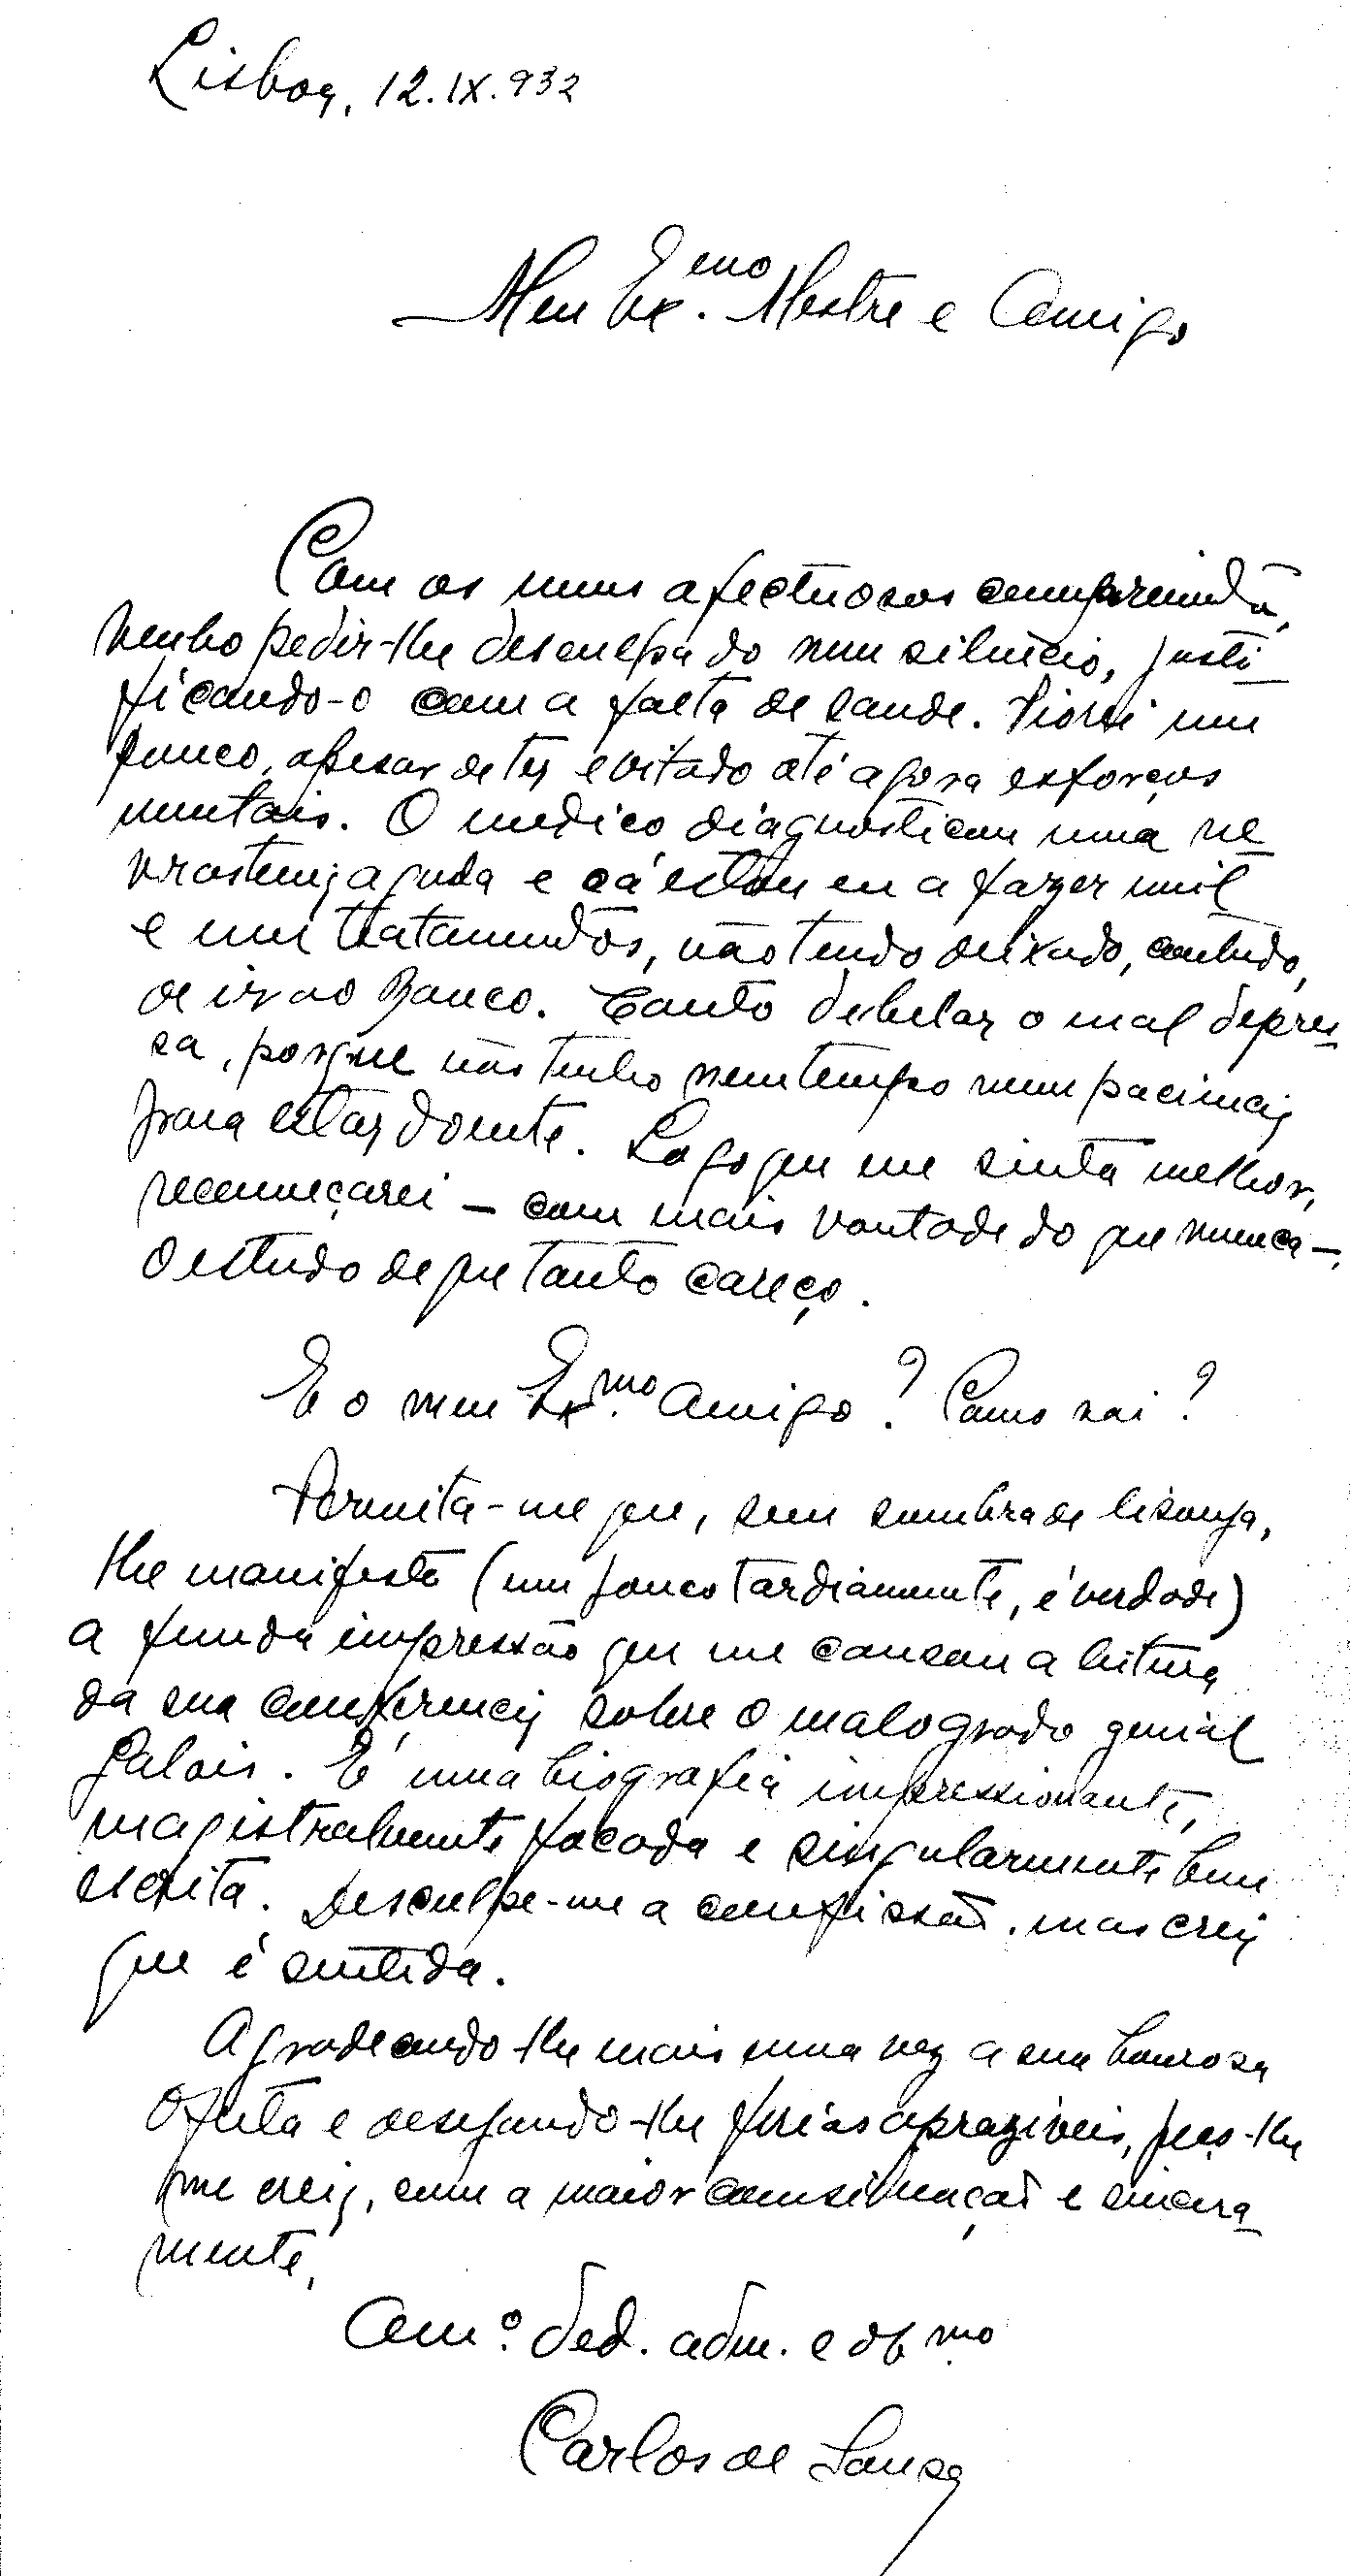 Lisboa, 12.IX.932
Meu Ex.emo Mestre e Amigo
Com os meus afectuosos cumprimentos,
venho pedir-lhe desculpa do meu silêncio, justi-
ficando-o com a falta de saude. Piorei um
pouco, apesar de ter evitado até agora esforços
mentais. O medico diagnosticou uma ne-
vrastenia aguda e cá estou eu a fazer mil
e um tratamentos, não tendo deixado, contudo,
de ir ao Banco. Tento debelar o mal depres-
sa, porque não tenho nem tempo nem paciencia
para estar doente. Logo que me sinta melhor,
recomeçarei — com mais vontade do que nunca —,
o estudo de que tanto careço.
E o meu Ex.mo Amigo? Como vai?
Permita-me que, sem sombra de lisonja,
lhe manifeste (um pouco tardiamente, é verdade)
a funda impressão que me causou a leitura
da sua conferencia sobre o malogrado genial
Galois. É uma biografia impressionante,
magistralmente focada e singularmente bem
escrita. Desculpe-me a confissão, mas creia
que é sentida.
Agradecendo-lhe mais uma vez a sua honrosa
oferta e desejando-lhe férias aprazíveis, peço-lhe
me creia, com a maior consideração e sincera-
mente,
Am.º ded. adm. e ob.mo
Carlos de Sousa